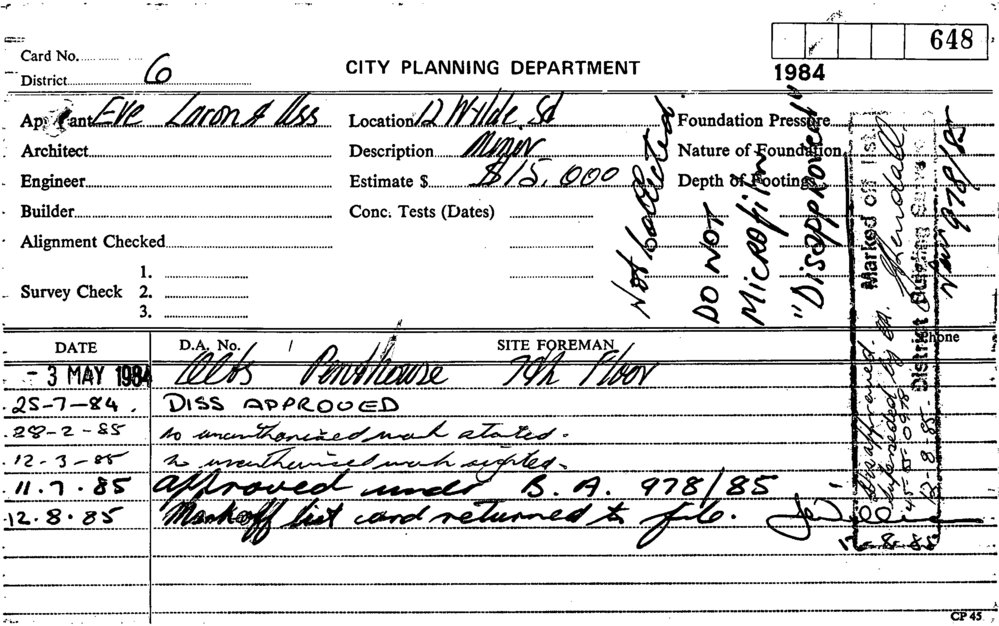 648
1984
Card No.
District 6
CITY PLANNING DEPARTMENT
Applicant Eve Laron & Ass
Location 12 Wylde St
Foundation Pressure
Architect
Description Minor
Nature of Foundation
Engineer
Estimate $ $15,000
Depth of Footings
Builder
Conc. Tests (Dates)
Alignment Checked
Survey Check
1.
2.
3.
Not collected
DO NOT
Microfilm
"Disapproved"
Marked off list
District Building Surveyor
978/85
Disapproved.
Superseded by BA.
45-85-0978
12-8-85
DATE
D.A. No.
SITE FOREMAN
Phone
- 3 MAY 1984 Alts Penthouse 7th Floor
25-7-84. DISS APPROVED
28-2-85 no unauthorised work started.
12-3-85 no unauthorised work sighted.
11.7.85 approved under B.A. 978/85
12.8.85 Mark off list card returned to file.
12-8-85
CP 45